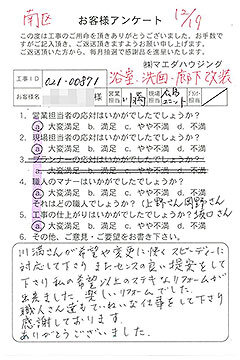 南区
12/19
お客様アンケート
この度は工事のご用命を頂きありがとうございました。お手数で
すがご記入頂き、ご返送頂きますようお願い申し上げます。
ご返送頂いた方から、毎月抽選で感謝品を進呈いたします。
㈱マエダハウジング
工事ID 021-00871 浴室、洗面、廊下 改装
お客様名 様 営業担当 川満 現場担当
1. 営業担当者の応対はいかがでしたでしょうか?
a)大変満足 b)満足 c)やや不満 d)不満
2. 現場担当者の応対はいかがでしたでしょうか?
a)大変満足 b)満足 c)やや不満 d)不満
3. プランナーの応対はいかがでしたでしょうか?
a)大変満足 b)満足 c)やや不満 d)不満
4. 職人のマナーはいかがでしたでしょうか?
a)大変満足 b)満足 c)やや不満 d)不満
それはどの職人でしょうか?(上野さん 岡野さん 坂口さん
5. 工事の仕上がりはいかがでしたでしょうか?
a)大変満足 b)満足 c)やや不満 d)不満
6. その他、ご意見・ご要望をお書き下さい。
川満さんが希望や変更に快くスピーディーに
対応して下さり またセンスの良い提案をして
下さり 私の希望以上のステキなリフォームが
出来ました。楽しいリフォームでした。
職人さん達もていねいな仕事をして下さり
感謝しております。
ありがとうございました。